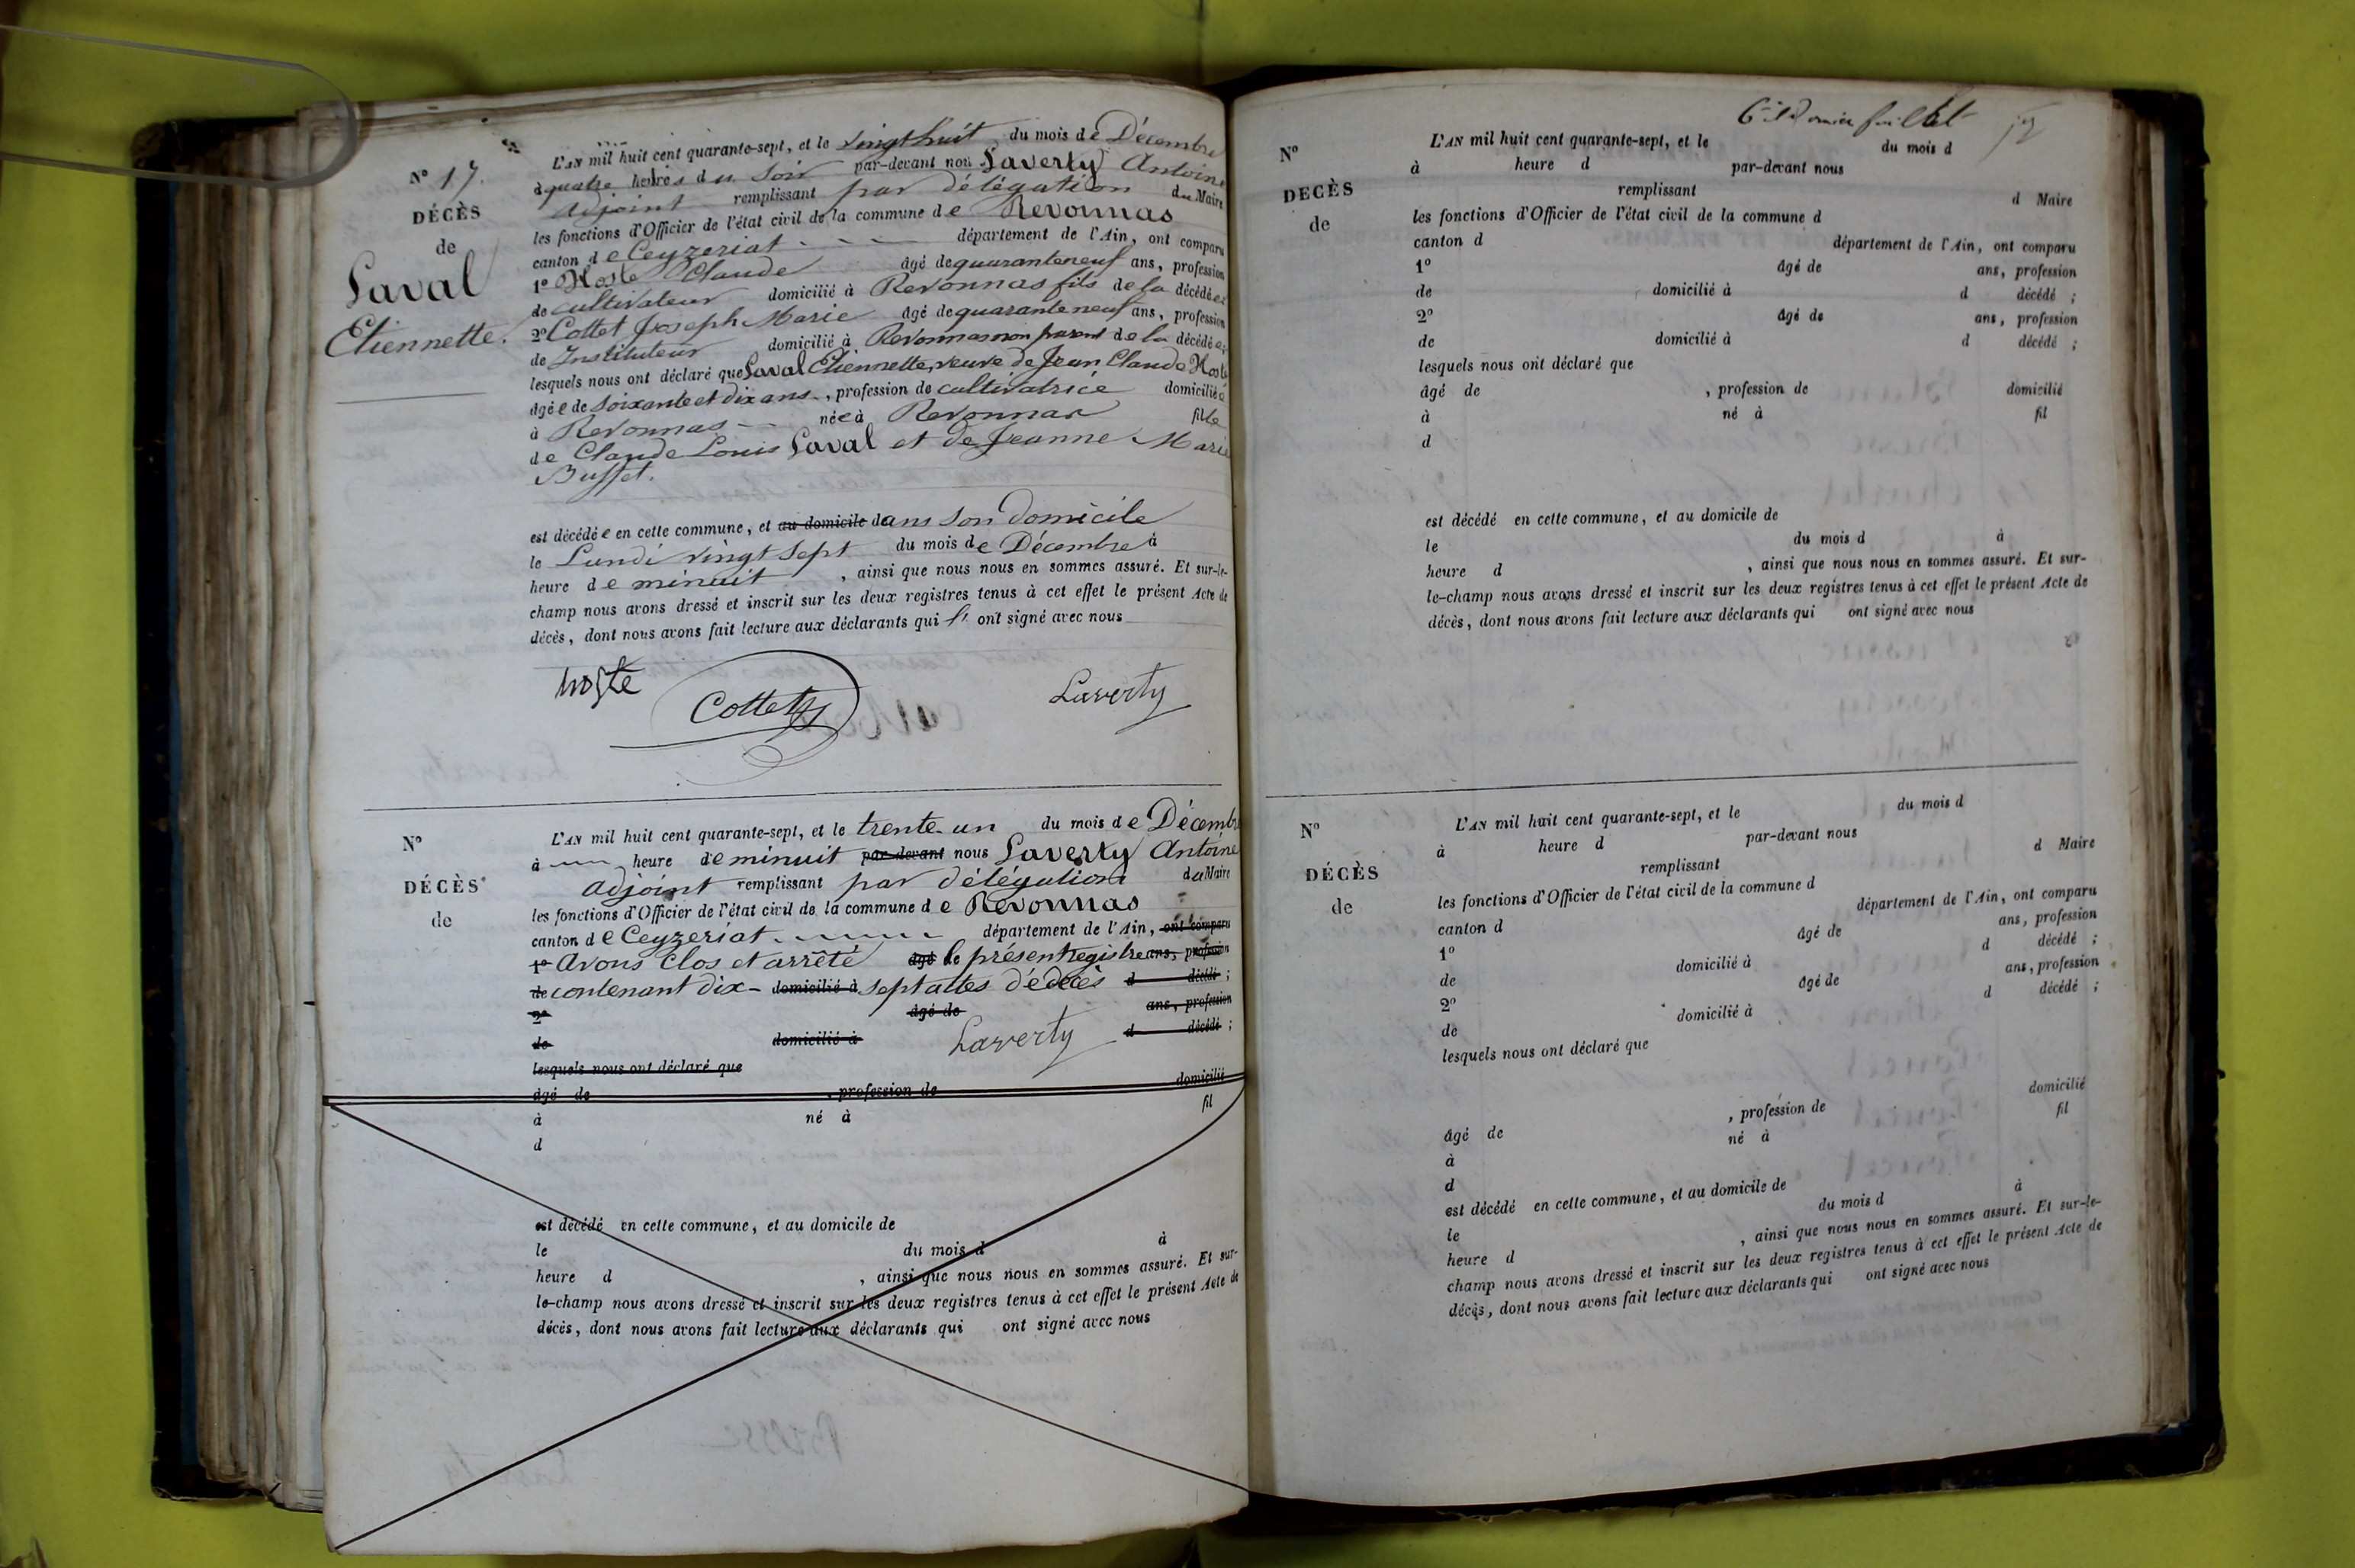 N° 17.
DÉCÈS
de
Laval
Etiennette.
L'AN mil huit cent quarante-sept, et le vingt huit du mois de Décembre
à quatre heures du soir par-devant nous Laverty Antoine
adjoint remplissant par délégation du Maire
les fonctions d'Officier de l'état civil de la commune de Revonnas
canton de Ceyzeriat - - - département de l'Ain, ont comparu
1° Hoste Claude âgé de quarante neuf ans, profession
de cultivateur domicilié à Revonnas fils de la décédée;
2° Cottet Joseph Marie âgé de quarante neuf ans, profession
de Instituteur domicilié à Revonnas non parent de la décédée;
lesquels nous ont déclaré que Laval Etiennette, veuve de Jean Claude Hoste
âgée de soixante et dix ans, profession de cultivatrice domiciliée
à Revonnas - née à Revonnas fille
de Claude Louis Laval et de Jeanne Marie
Buffet.
est décédée en cette commune, et au domicile dans son domicile
le Lundi vingt sept du mois de Décembre à
heure de minuit , ainsi que nous nous en sommes assuré. Et sur-le-
champ nous avons dressé et inscrit sur les deux registres tenus à cet effet le présent Acte de
décès, dont nous avons fait lecture aux déclarants qui ont signé avec nous
hoste
Cottet
Laverty
N°
DÉCÈS
de
L'AN mil huit cent quarante-sept, et le trente-un du mois de Décembre
à heure de minuit par-devant nous Laverty Antoine
adjoint remplissant par délégation du Maire
les fonctions d'Officier de l'état civil de la commune de Revonnas
canton de Ceyzeriat département de l'Ain, ont comparu
1° avons clos et arrêté âgé de le présent registre ans, profession
de contenant dix- domicilié à sept actes de décès d décédé ;
2° âgé de ans, profession
de domicilié à d décédé ;
Laverty
lesquels nous ont déclaré que
âgé de , profession de domicilié
à né à fil
d
est décédé en cette commune, et au domicile de
le du mois d à
heure d , ainsi que nous nous en sommes assuré. Et sur-
le-champ nous avons dressé et inscrit sur les deux registres tenus à cet effet le présent Acte de
décès, dont nous avons fait lecture aux déclarants qui ont signé avec nous
N°
DECÈS
de
L'AN mil huit cent quarante-sept, et le du mois d
à heure d par-devant nous
remplissant d Maire
les fonctions d'Officier de l'état civil de la commune d
canton d département de l'Ain, ont comparu
1° âgé de ans, profession
de domicilié à d décédé ;
2° âgé de ans, profession
de domicilié à d décédé ;
lesquels nous ont déclaré que
âgé de , profession de domicilié
à né à fil
d
est décédé en cette commune, et au domicile de
le du mois d à
heure d , ainsi que nous nous en sommes assuré. Et sur-
le-champ nous avons dressé et inscrit sur les deux registres tenus à cet effet le présent Acte de
décès, dont nous avons fait lecture aux déclarants qui ont signé avec nous
N°
DÉCÈS
de
L'AN mil huit cent quarante-sept, et le du mois d
à heure d par-devant nous
remplissant d Maire
les fonctions d'Officier de l'état civil de la commune d
canton d département de l'Ain, ont comparu
1° âgé de ans, profession
de domicilié à d décédé ;
2° âgé de ans, profession
de domicilié à d décédé ;
lesquels nous ont déclaré que
âgé de , profession de domicilié
à né à fil
d
est décédé en cette commune, et au domicile de
le du mois d à
heure d , ainsi que nous nous en sommes assuré. Et sur-le-
champ nous avons dressé et inscrit sur les deux registres tenus à cet effet le présent Acte de
décès, dont nous avons fait lecture aux déclarants qui ont signé avec nous